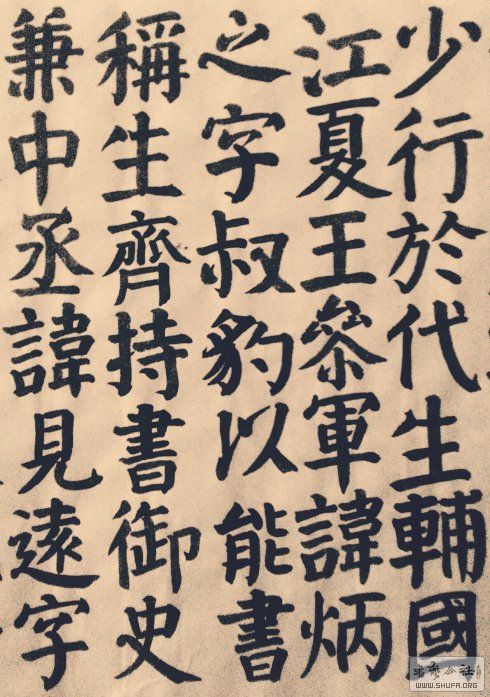 少行於代生輔國
江夏王參軍諱炳
之字叔豹以能書
稱生齊持書御史
兼中丞諱見遠字
書法公社
WWW.SHUFA.ORG